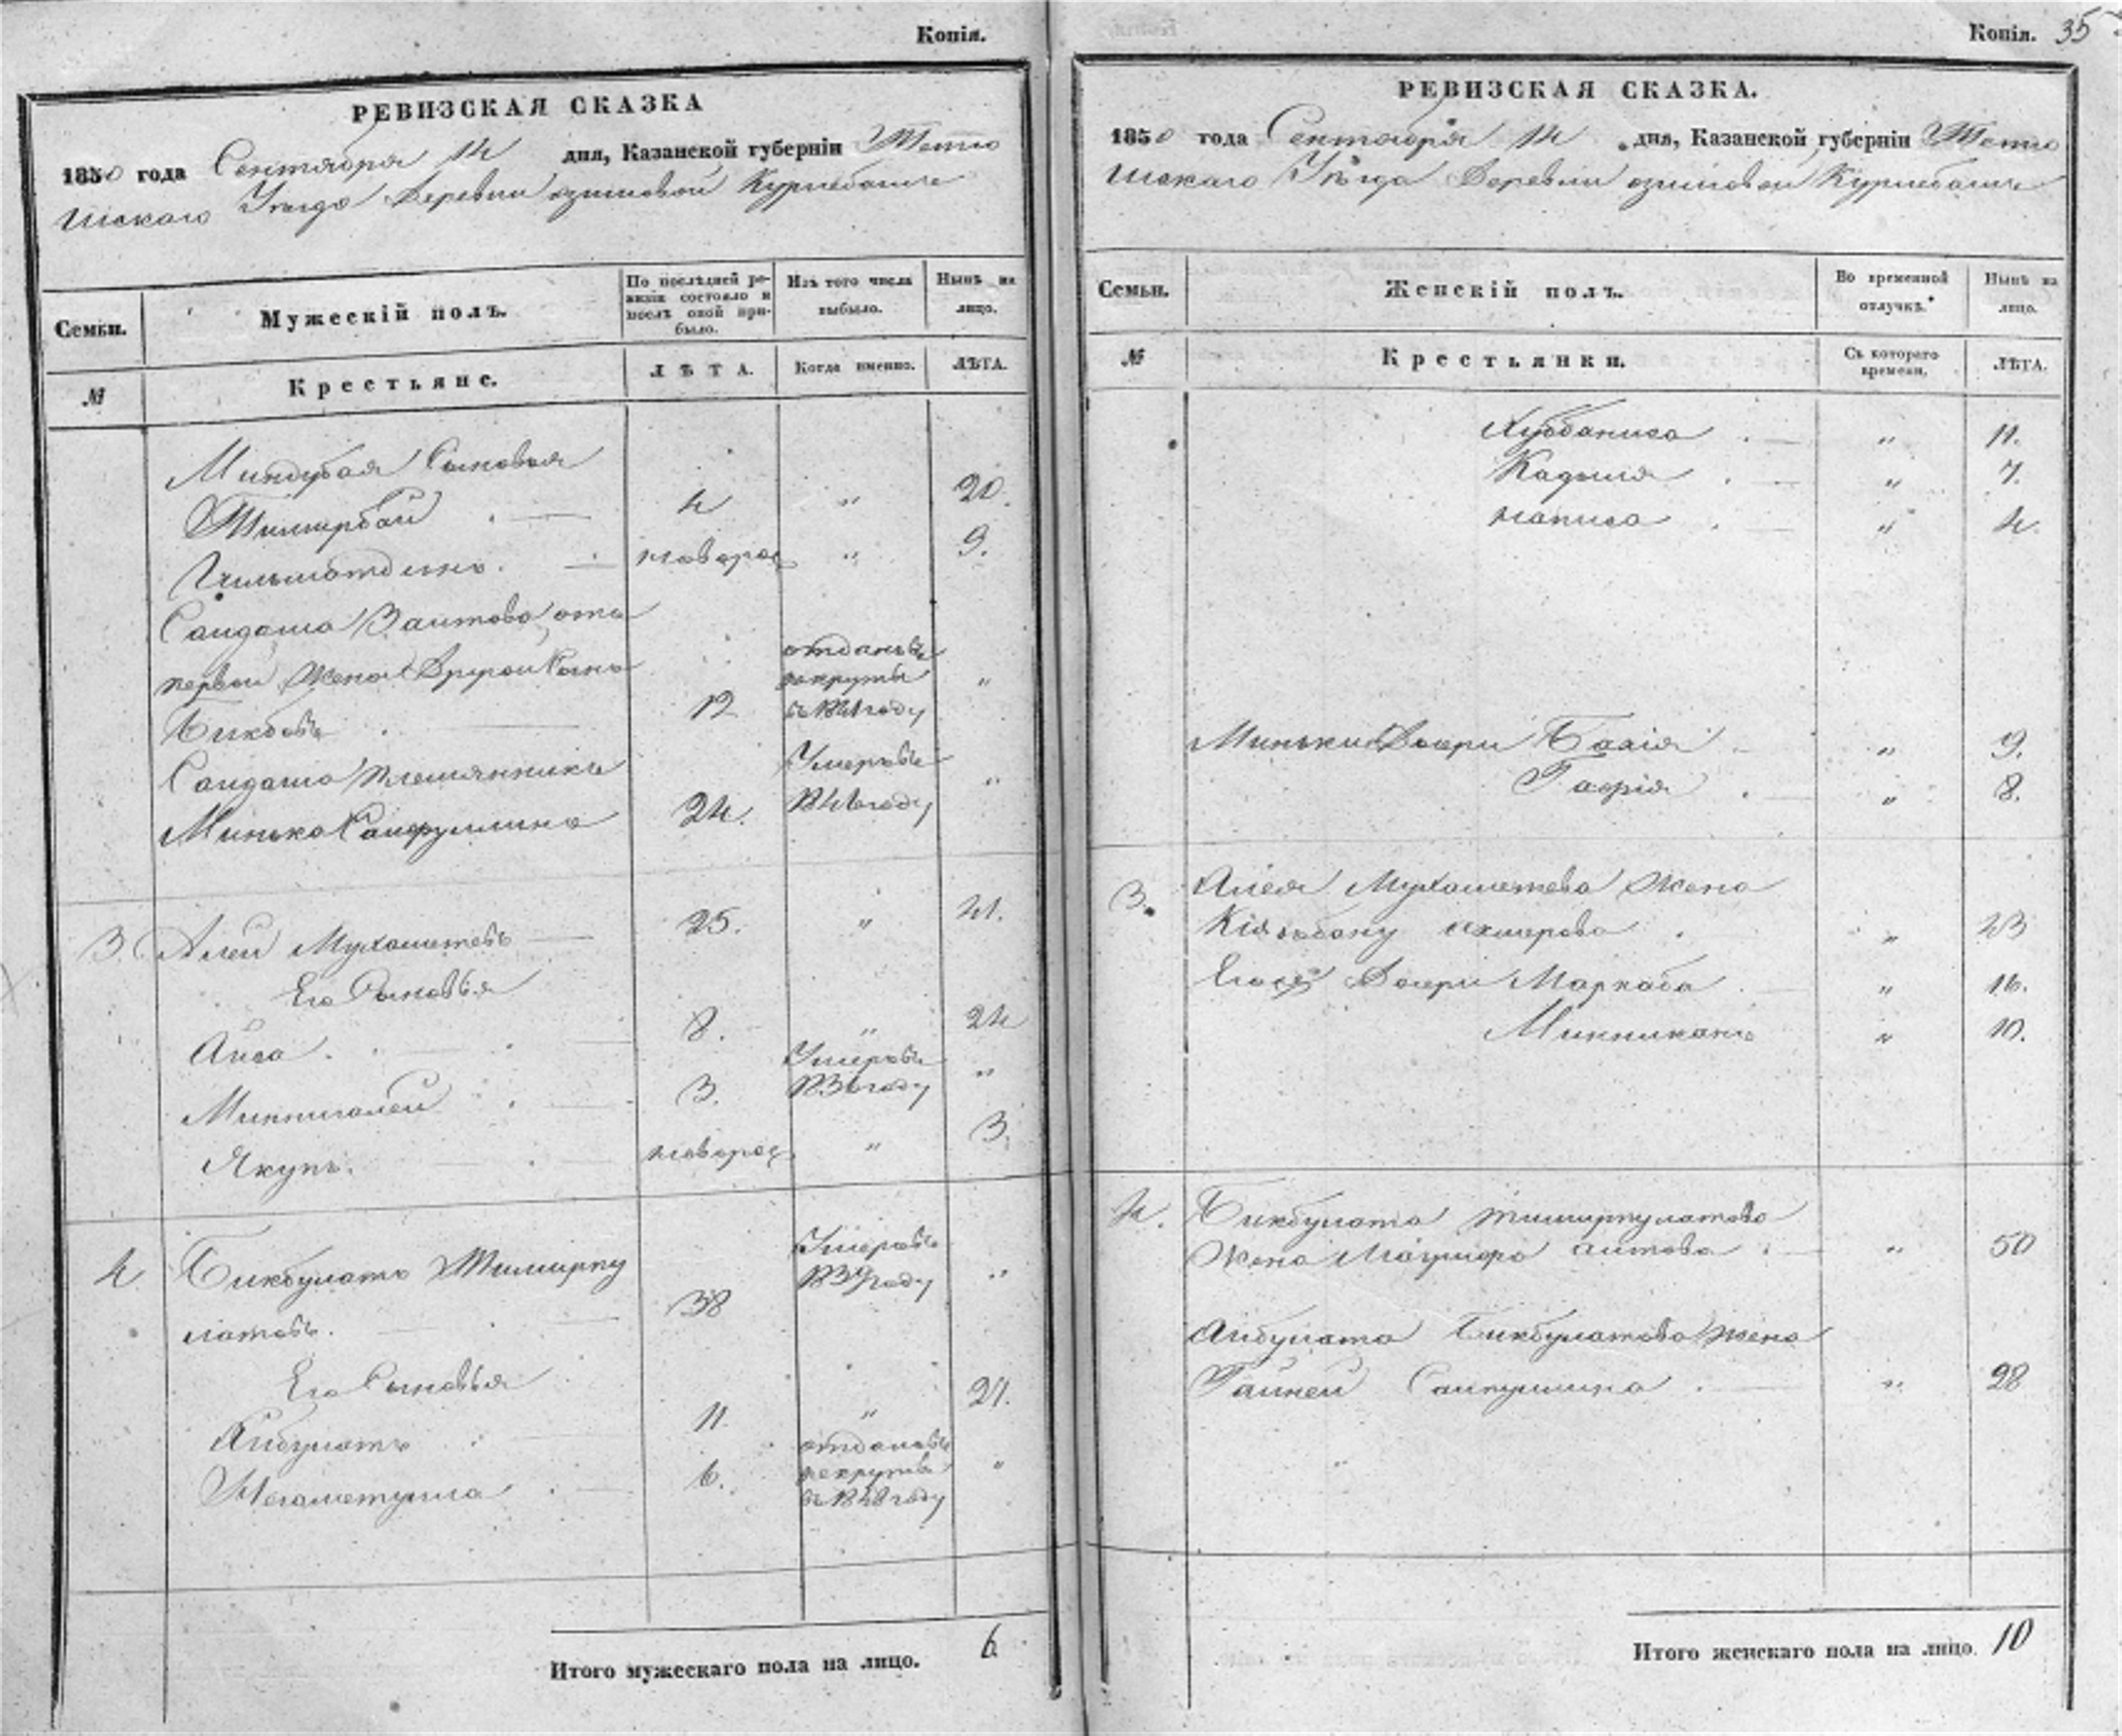 Копія.
РЕВИЗСКАЯ СКАЗКА
1850 года Сентября 14 дня, Казанской губерніи Тетю
шскаго Уѣзда Деревни озимовой Курмебаше
Семьи.
Мужескій полъ.
По послѣдней ре-
визіи состояло и
послѣ оной при-
было.
Изъ того числа
выбыло.
Нынѣ на
лицо.
№
Крестьяне.
ЛѢТА.
Когда именно.
ЛѢТА.
Миндубая Сыновья
Тимирбай 4 " 20.
новорож " 9.
Сандаша Заитова отъ
первой жены Другой Сынъ
Бикбовъ 12 отданъ въ рекруты въ 1841 году "
Сандаша племянникъ
Минька Сайфуллинъ 24. Умеръ въ 1846 году "
3. Алей Мухаметевъ 25. " 41.
Его Сыновья
Айса 8. " 24
Миннигалей 3. Умеръ въ 1836 году "
Якупъ. новорож " 3.
4 Бикбулатъ Тимирпу
латовъ. 38 Умеръ въ 1839 году "
Его Сыновья
Айбулатъ 11. " 27.
Негаметулла 6. отданъ въ рекруты въ 1848 году "
Итого мужескаго пола на лицо. 6
Копія. 35
РЕВИЗСКАЯ СКАЗКА.
1850 года Сентября 14 дня, Казанской губерніи Тетю
шскаго Уѣзда Деревни озимовой Курмебаше
Семьи.
Женскій полъ.
Во временной
отлучкѣ.
Нынѣ на
лицо.
№
Крестьянки.
Съ котораго
времени.
ЛѢТА.
Хубваниса " 11.
Кадыша " 7.
" 4.
Миньки Дочери Базія " 9.
" 8.
3. Алея Мухаметева Жена
" 43
Его Дочери Маркаба " 16.
Минникаю " 10.
4. Бикбулата Тимирпулатова
Жена Аитова " 50
Айбулата Бикбулатова жена
Гайней " 28
Итого женскаго пола на лицо. 10